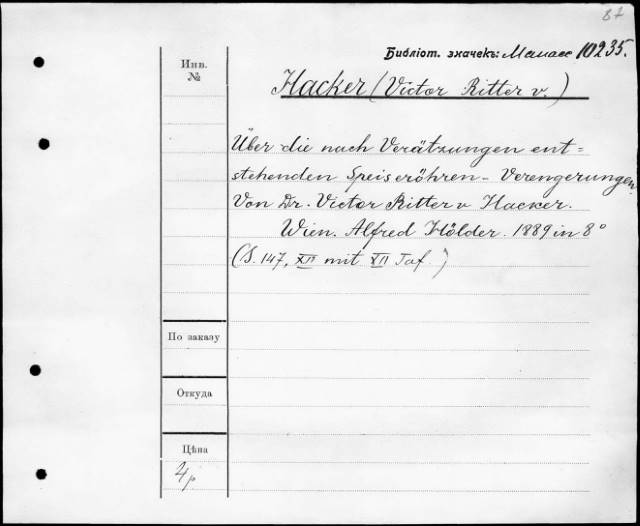 87
Библіот. значекъ: 10235.
Инв.
№
Hacker (Victor Ritter v.)
Über die nach Verätzungen ent=
stehenden Speiseröhren-Verengerungen
Von Dr. Victor Ritter v Hacker.
Wien. Alfred Hölder. 1889 in 8°
(S. 147, XII mit XII Taf.)
По заказу
Откуда
Цѣна
4 р